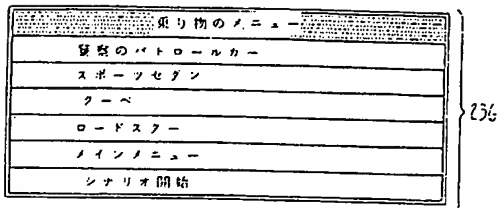 乗り物のメニュー
警察のパトロールカー
スポーツセダン
クーペ
ロードスター
メインメニュー
シナリオ開始
236